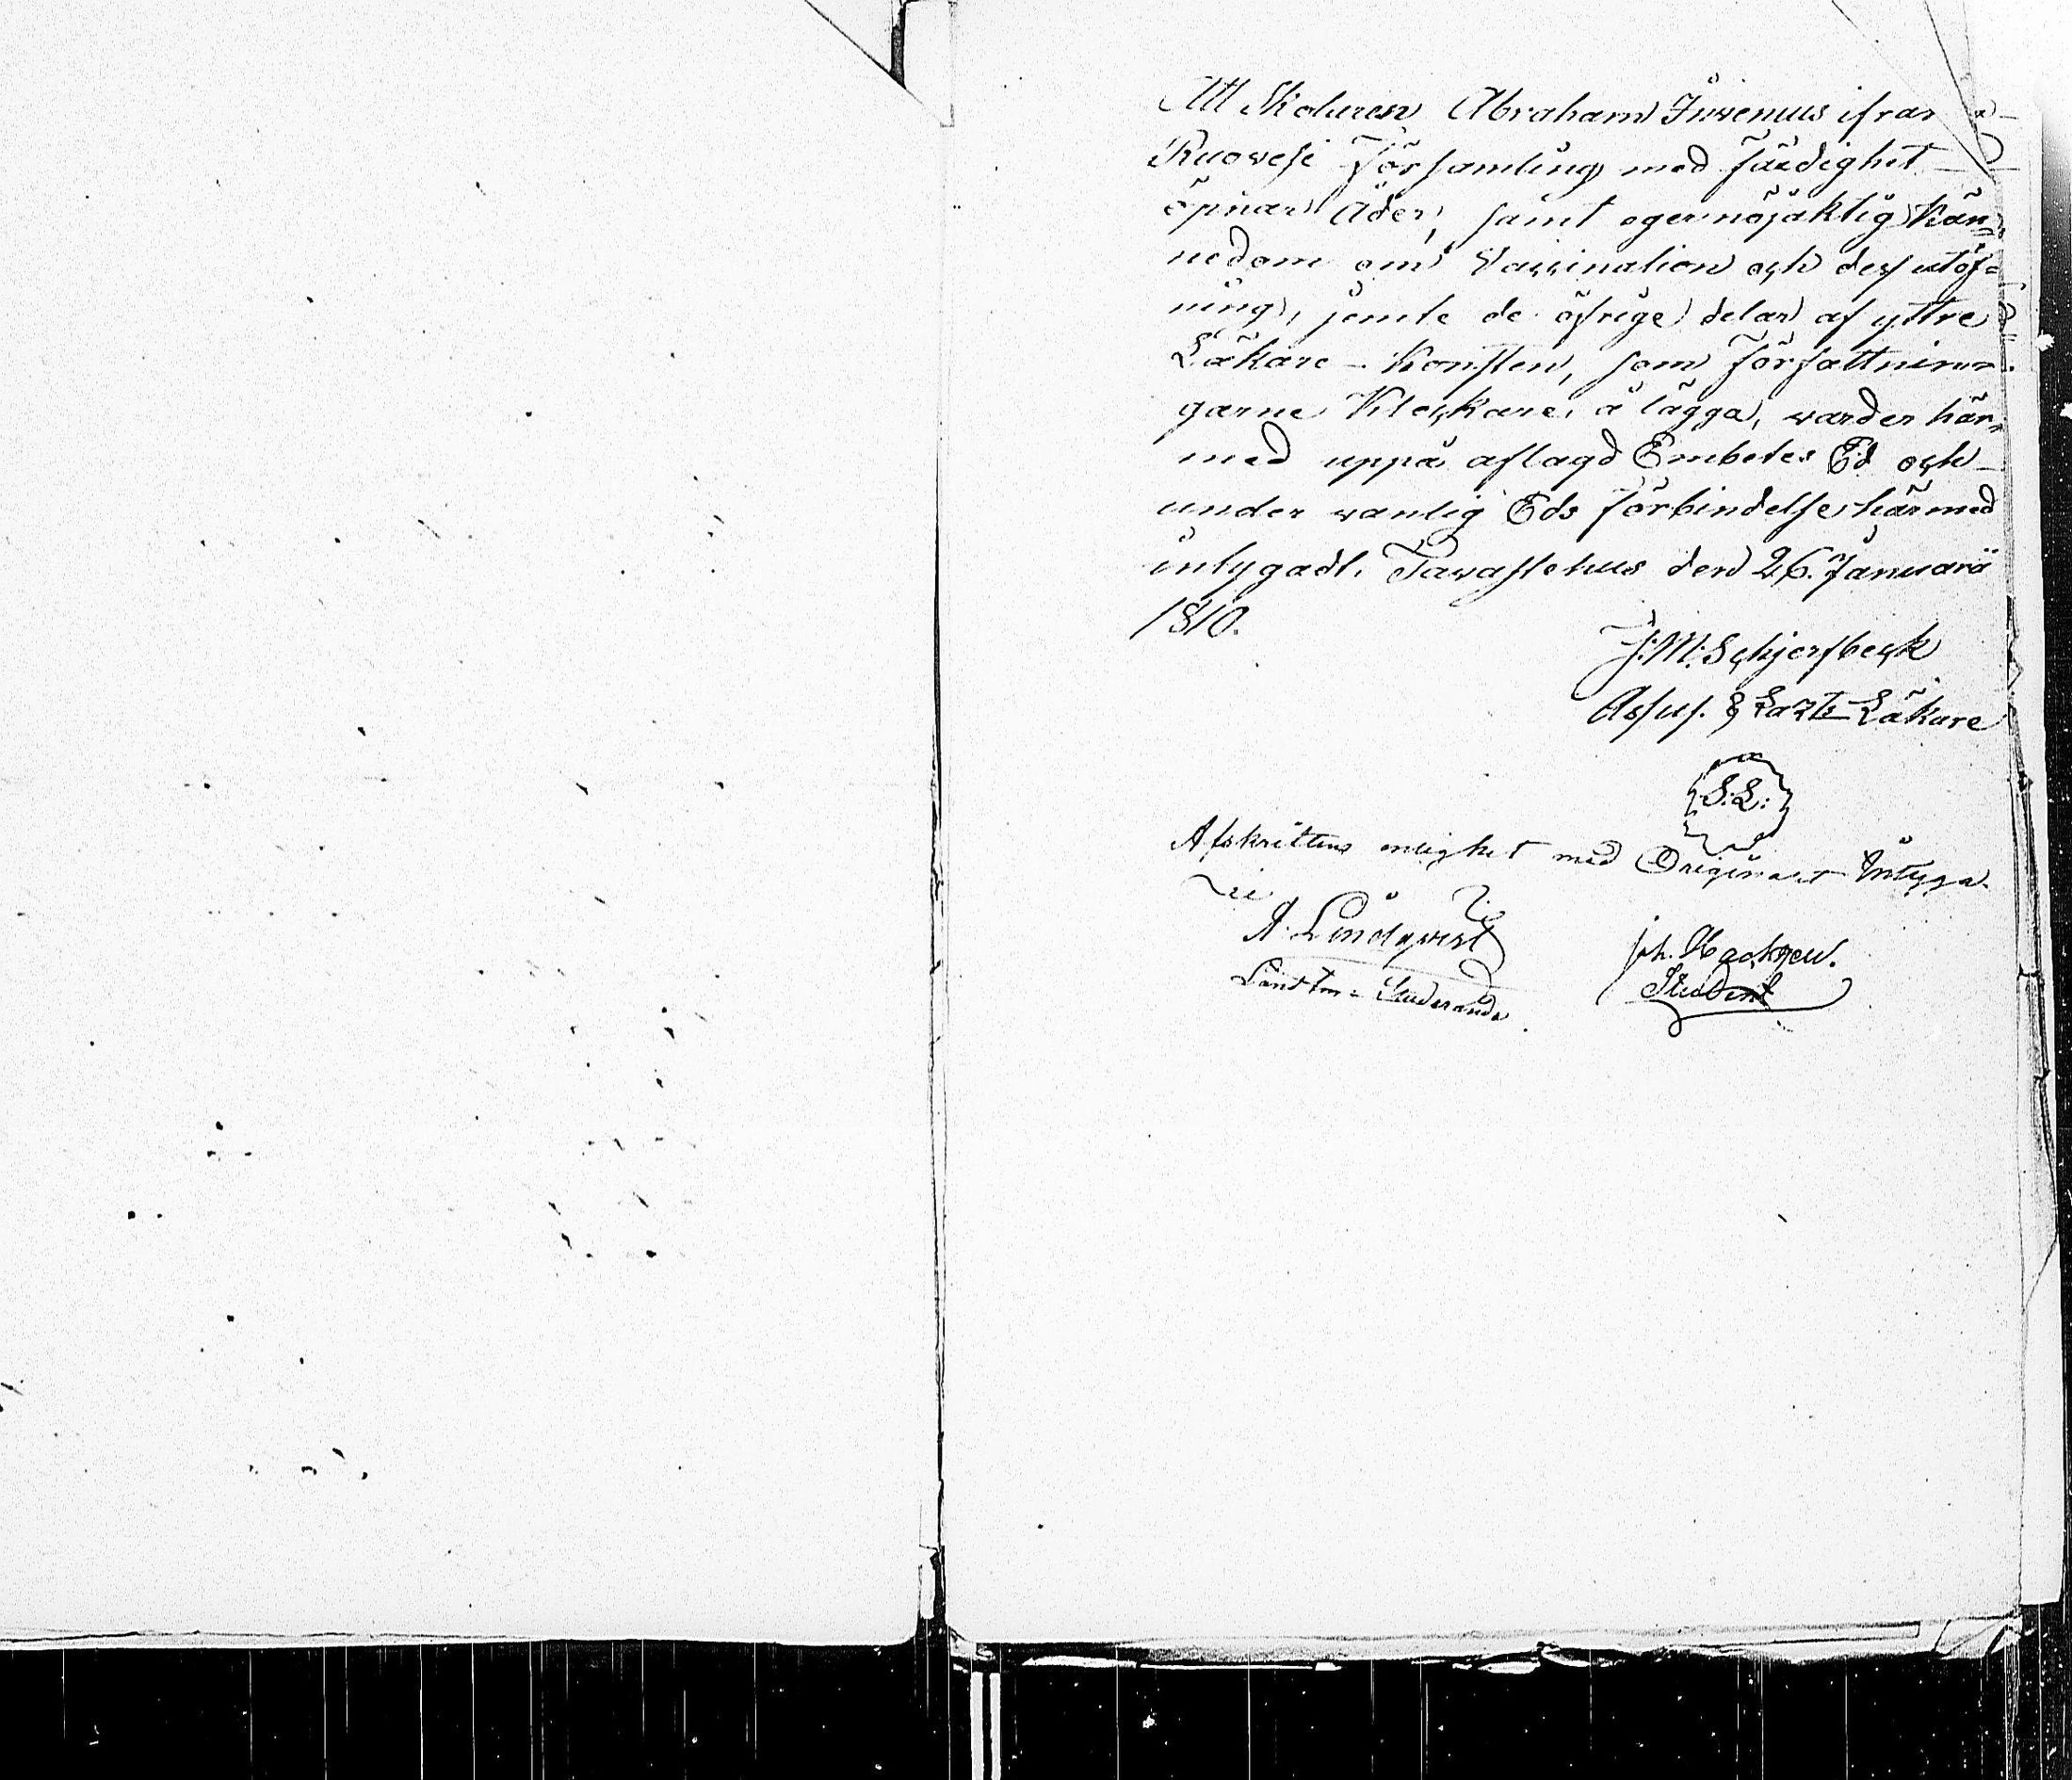 Att Skoluren Abraham Juvenius ifrån
Ruowesi Församling med färdighet
öpnar Åder, samt eger nöjaktig Kän=
nedom om Vaccination och dess utöf=
ning, jemte de öfrige delar af yttre
Läkare-Konsten, som författnin-
garne Klockare å lägga, warder här=
med uppå aflagd Embetes Ed och
under wanlig Eds förbindelse härmed
intygadt. Tawastehus den 26. Januarii
1810.
J: M: Schjerfbeck
Assess. & Lazts-Läkare
S: L:
Afskriftens enlighet med Originalet Intyga.
A. Lindqwist
Joh. Hackzell.
Landtm: Studerande
Student